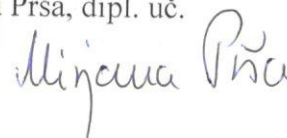 Prša, dipl. uč.
Mirjana Prša